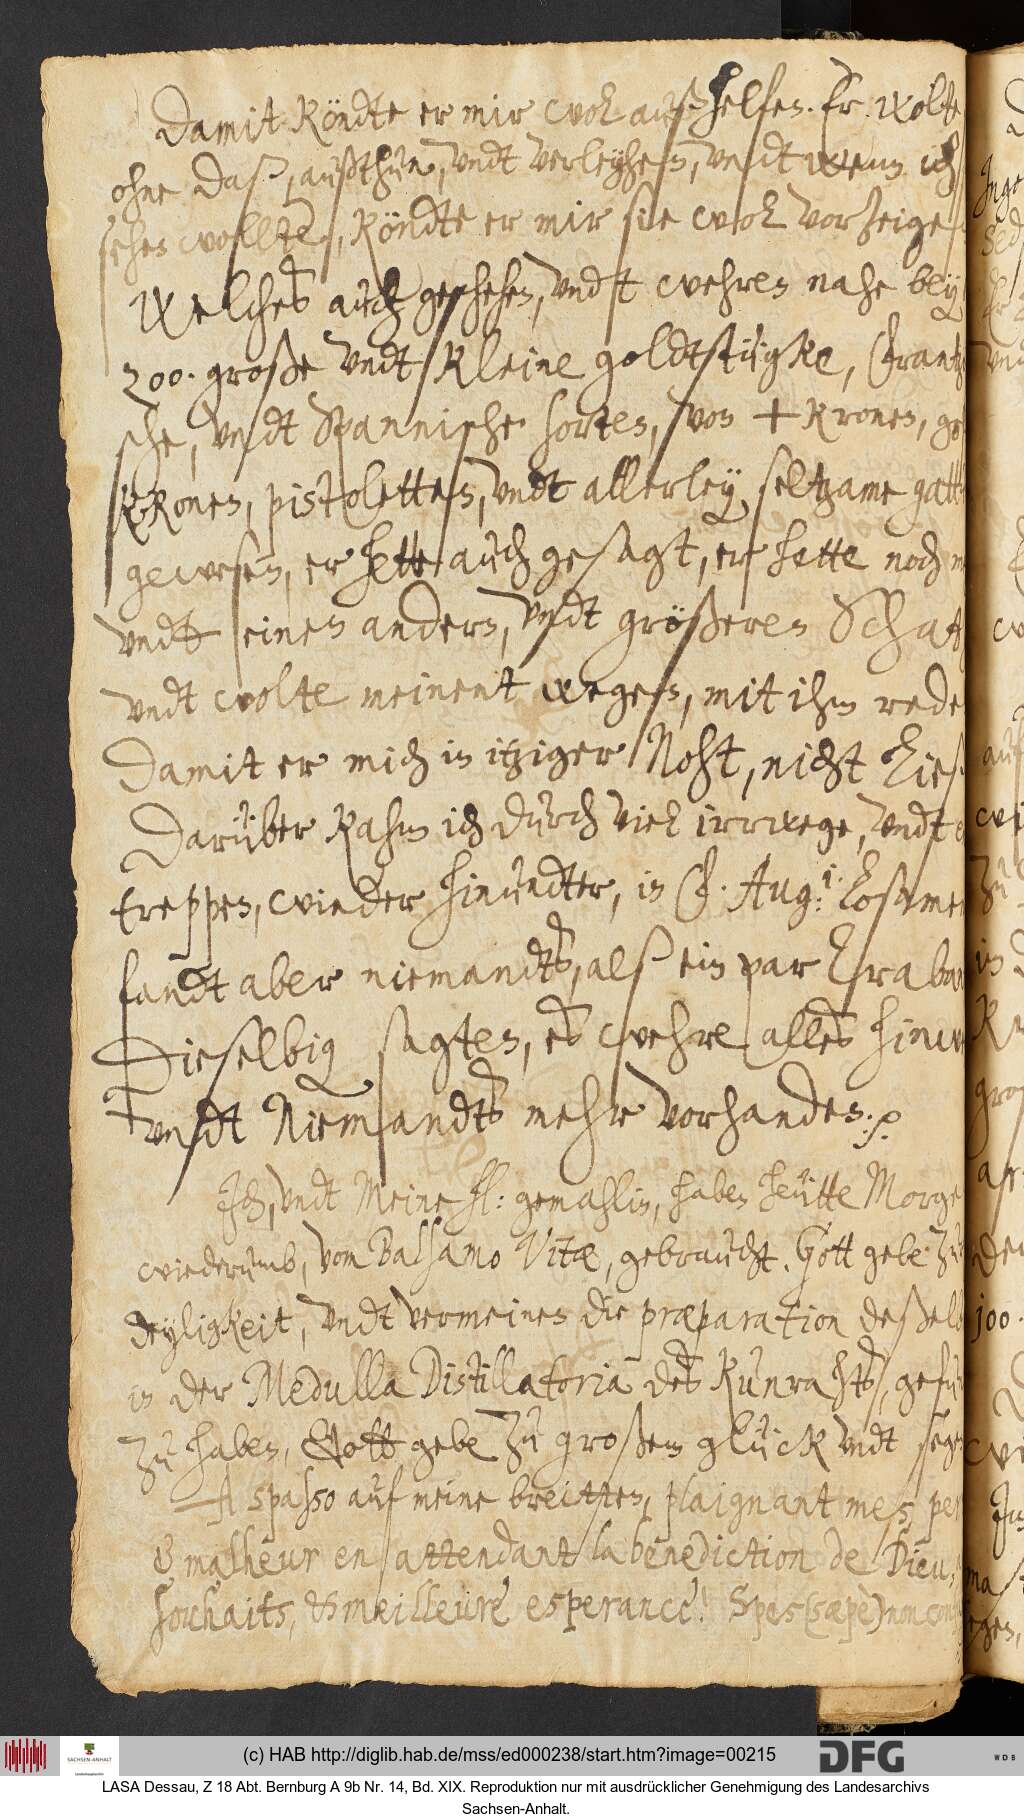 Damit köndte er mir wol auß helfen. Er wolte
ohne daß, außthun, undt verleyhen, undt wenn ich
sehen wollte, köndte er mir sie wol vorzeigen
Welches auch geschehen, undt wehren nahe bey
200. große undt kleine goldtstügke, Frantz
sche, undt Spannische sorten, von + kronen, ge
kronen, pistoletten, undt allerley seltzame gatt
gewesen, er hette auch gesagt, er hette noch
undt einen andern, undt größeren Schatz
undt wolte meinent wegen, mit ihm rede
Damit er mich in itziger Noht, nicht ließ
Darüber kahm ich durch viel irrwege, undt
treppen, wieder hinundter, in F. Aug:i: losame
fandt aber niemandts, alß ein par Traba
Dieselbig sagten, es wehre alles hinw
undt Niemandts mehr vorhanden. p
Ich, undt Meine fl: gemahlin, haben heütte Morge
wiederumb, vom Balsamo Vitæ, gebraucht. Gott gebe zu
deyligkeit, undt vermeinen die præparation deßel
in der Medulla Distillatoria des Kunrahts, gefu
zu haben, Gott gebe zu großem glück undt sege
A spasso auf meine breitten, plaignant mes per
& malheur en attendant la benediction de Dieu,
souhaits, & meilleure esperance! Spes (sæpè) non con
(c) HAB http://diglib.hab.de/mss/ed000238/start.htm?image=00215
DFG
WDB
SACHSEN-ANHALT
LASA Dessau, Z 18 Abt. Bernburg A 9b Nr. 14, Bd. XIX. Reproduktion nur mit ausdrücklicher Genehmigung des Landesarchivs
Sachsen-Anhalt.